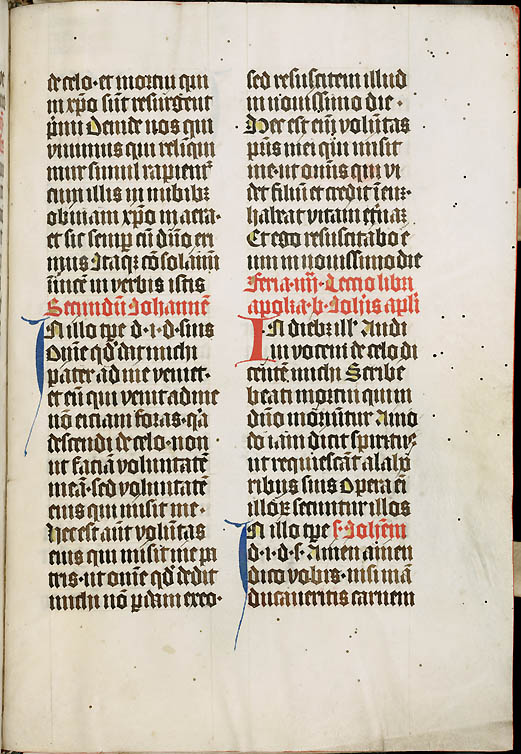 de celo· et mortui qui
in xp̄o sūt resurgent
p̄mi Deinde nos qui
viuimus qui relīqui
mur simul rapient᷑
cum illis in nubibꝫ
obuiam xp̄o in aera·
et sic semp̲ cū dn̄o eri
mus Itaqꝫ cōsolamī
īuicē in verbis istis
Secundū Iohannē
In illo tp̄e d· i· d· suis
Omē qd̓ dat michi
pater ad me veniet·
et eū qui venit ad me
nō eiciam foras· q̓a
descendi de celo· non
ut faciā voluntatē
meā· sed voluntatē
eius qui misit me·
Hec est aūt volūtas
eius qui misit me pa
tris· ut omē qd̓ dedit
michi nō p̲dam ex eo·
sed resuscitem illud
in nouissimo die·
Hec est em̄ volūtas
pr̄is mei qui misit
me· ut omīs qui vi
det filiū et credit ī eū·
habeat vitam et̄nā
Et ego resuscitabo e
um in nouissimo die
Feria· iiij· Lectio libri
apokͣ· b· Ioh̄is apl̄i
In diebꝫ ill̓· Audi
ui vocem de celo di
centē michi Scribe
beati mortui qui in
dn̄o moriūtur Amo
do iam dicit spiritus
ut requiescāt a labo
ribus suis Opera em̄
illoꝝ secuntur illos
In illo tp̄e s· Ioh̄em
d· i· d· s· Amen amen
dico vobis· nisi mā
ducaueritis carnem